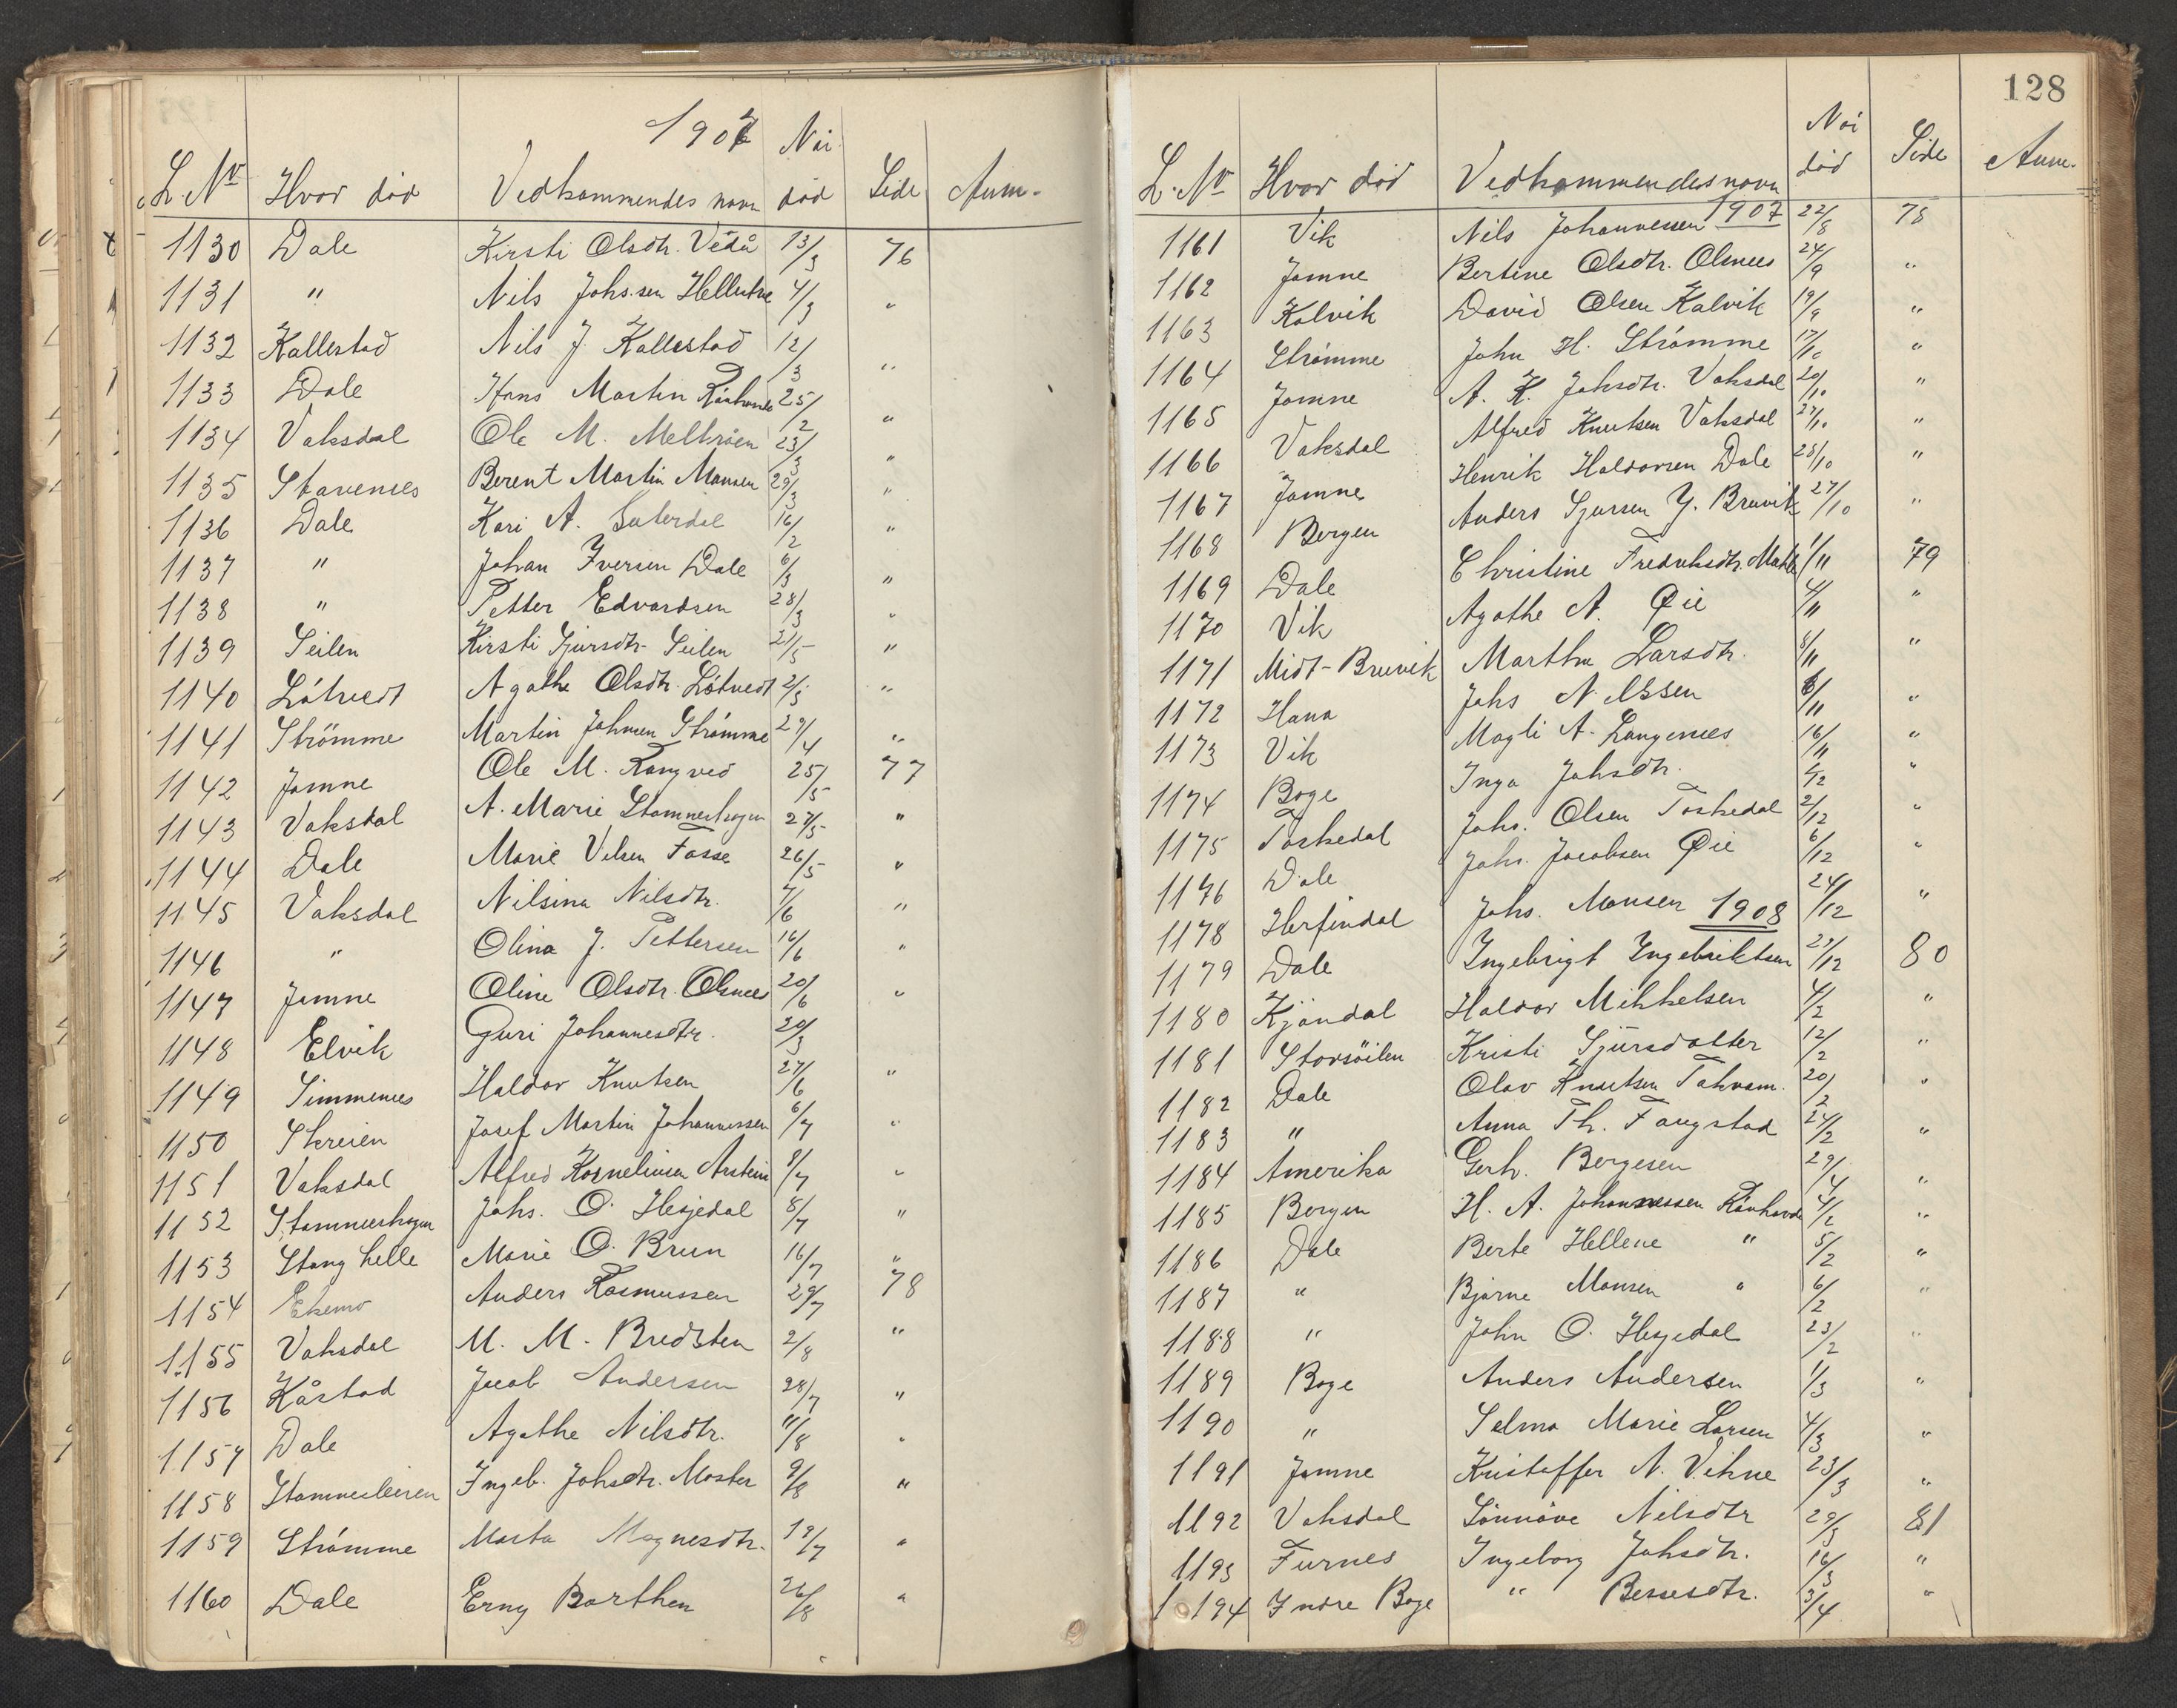 1907
L. No Hvor död Vedkommendes navn Når död Side Anm.
1130 Dale Kirsti Olsdtr. Vedå 13/3 76
1131 " Nils Johs.sen 4/3 "
1132 Kallestad Nils J. Kallestad 12/3 "
1133 Dale Hans Martin 25/2 "
1134 Vaksdal Ole M. 23/3 "
1135 Stavenes Berent Martin Monsen 29/3 "
1136 Dale Kari A. 16/2 "
1137 " Johan Iversen Dale 6/3 "
1138 " Petter Edvardsen 28/3 "
1139 Seilen Kirsti Sjursdtr. Seilen 21/5 "
1140 Låtvedt Agathe Olsdtr. Låtvedt 2/5 "
1141 Strömme Martin Johnsen Strömme 29/4 "
1142 Jamne Ole M. Rangved 25/5 77
1143 Vaksdal A. Marie Stamneshagen 27/5 "
1144 Dale Marie Fosse 26/5 "
1145 Vaksdal Nilsina Nilsdtr. 7/6 "
1146 " Olina J. Pettersen 16/6 "
1147 Jamne Oline Olsdtr. Olsnes 20/6 "
1148 Elvik Guri Johannesdtr. 20/3
1149 Simmenes Haldor Knutsen 27/6 "
1150 Skreien Josef Martin Johannessen 6/7 "
1151 Vaksdal Alfred 8/7 "
1152 Stamneshagen Johs. O. Hesjedal 8/7 "
1153 Stanghelle Marie O. Brun 16/7 "
1154 Ekemo Anders Rasmussen 29/7 78
1155 Vaksdal M. M. Bredsten 2/8 "
1156 Kårstad Jacob Andersen 28/7 "
1157 Dale Agathe Nilsdtr. 11/8 "
1158 Ingeb. Johsdtr. Moster 9/8 "
1159 Strömme Marta Magnesdtr. 19/7 "
1160 Dale Erny Barthen 26/8 "
128
L. No Hvor död Vedkommendes navn Når död Side Anm.
1907
1161 Vik Nils Johannessen 22/8 78
1162 Jamne Bertine Olsdtr. Olsnes 24/9 "
1163 Kalvik David Olsen Kalvik 19/9 "
1164 Strömme John H. Strömme 17/10 "
1165 Jamne A. K. Johsdtr. Vaksdal 20/10 "
1166 Vaksdal Alfred Knutsen Vaksdal 27/10 "
1167 Jamne Henrik Haldorsen Dale 28/10 "
1168 Bergen Anders Sjursen Y. Bruvik 27/10 "
1169 Dale Christine 1/11 79
1170 Vik Agathe A. Øie 4/11 "
1171 Midt-Bruvik Martha Larsdtr. 8/11 "
1172 Hana Johs Nilssen 6/11 "
1173 Vik Magli A. Langenes 16/11 "
1174 Boge Inga Johsdtr. "
1175 Toskedal Johs. Olsen Toskedal 2/12 "
1176 Dale Johs. Jacobsen Øie 6/12 "
1178 Herfindal Johs. Monsen 24/12 "
1908
1179 Dale Ingebrigt Ingebriktsen 29/12 80
1180 Kjöndal Haldor Mikkelsen 4/2 "
1181 Storsöilen Kristi Sjürsdatter 12/2 "
1182 Dale Olav Knutsen 20/2 "
1183 " Anna Th. Fangstad 24/2 "
1184 Amerika Gerh. Bergesen 29/4 "
1185 Bergen H. A. Johannessen 4/2 "
1186 Dale Berte Hellene " 5/2 "
1187 " Bjarne Monsen " 6/2 "
1188 " John O. Hesjedal 23/2 "
1189 Boge Anders Andersen 1/3 "
1190 " Selma Marie Larsen 4/3 "
1191 Jamne Kristoffer N. Vikne 23/3 "
1192 Vaksdal Sönnöve Nilsdtr 29/3 81
1193 Furnes Ingeborg Johsdtr. 16/3 "
1194 Indre Boge " 3/4 "